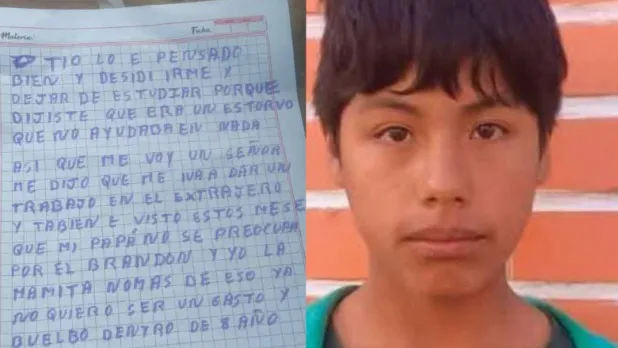 Materia:
Fecha
TIO LO E PENSADO
BIEN Y DESIDI IRME Y
DEJAR DE ESTUDIAR PORQUE
DIJISTE QUE ERA UN ESTORVO
QUE NO AYUDADA EN NADA
ASI QUE ME VOY UN SEÑOR
ME DIJO QUE ME IVA A DAR UN
TRABAJO EN EL EXTRAJERO
Y TABIEN E VISTO ESTOS MESE
QUE MI PAPÁ NO SE PREOCUPA
POR EL BRANDON Y YO LA
MAMITA NOMAS DE ESO YA
NO QUIERO SER UN GASTO Y
BUELBO DENTRO DE 8 AÑO